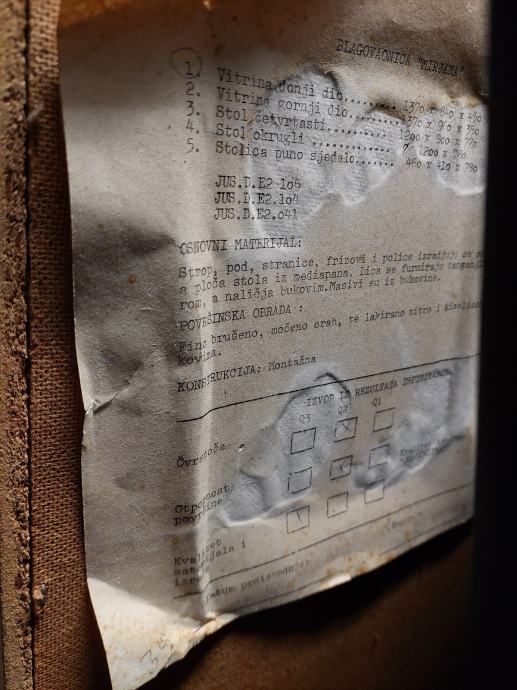 BLAGOVAONICA "MIRJANA"
1. Vitrina donji dio......... 1370 x 840 x 490
2. Vitrina gornji dio........ 1370 x 940 x 380
3. Stol četvrtasti........... 1200 x 800 x 770
4. Stol okrugli ............. 1200 x 780
5. Stolica puno sjedalo...... 460 x 410 x
JUS.D.E2-106
JUS.D.E2.104
JUS.D.E2.041
OSNOVNI MATERIJAL:
Strop, pod, stranice, frizovi i police izradjuju se
a ploča stola iz mediapana. Lica se furniraju
rom, a naličja bukovim.Masivi su iz bukovine.
POVRŠINSKA OBRADA :
Fino brušeno, močeno orah, te lakirano nitro i
KONSTRUKCIJA: Montažna
IZVOD IZ REZULTATA ISPITIVANJA
Q3 Q2 Q1
Čvrstoća
X
Otpornost
površine
X
Kvalitet
materijala i
izrade
X
Datum proizvodnje: